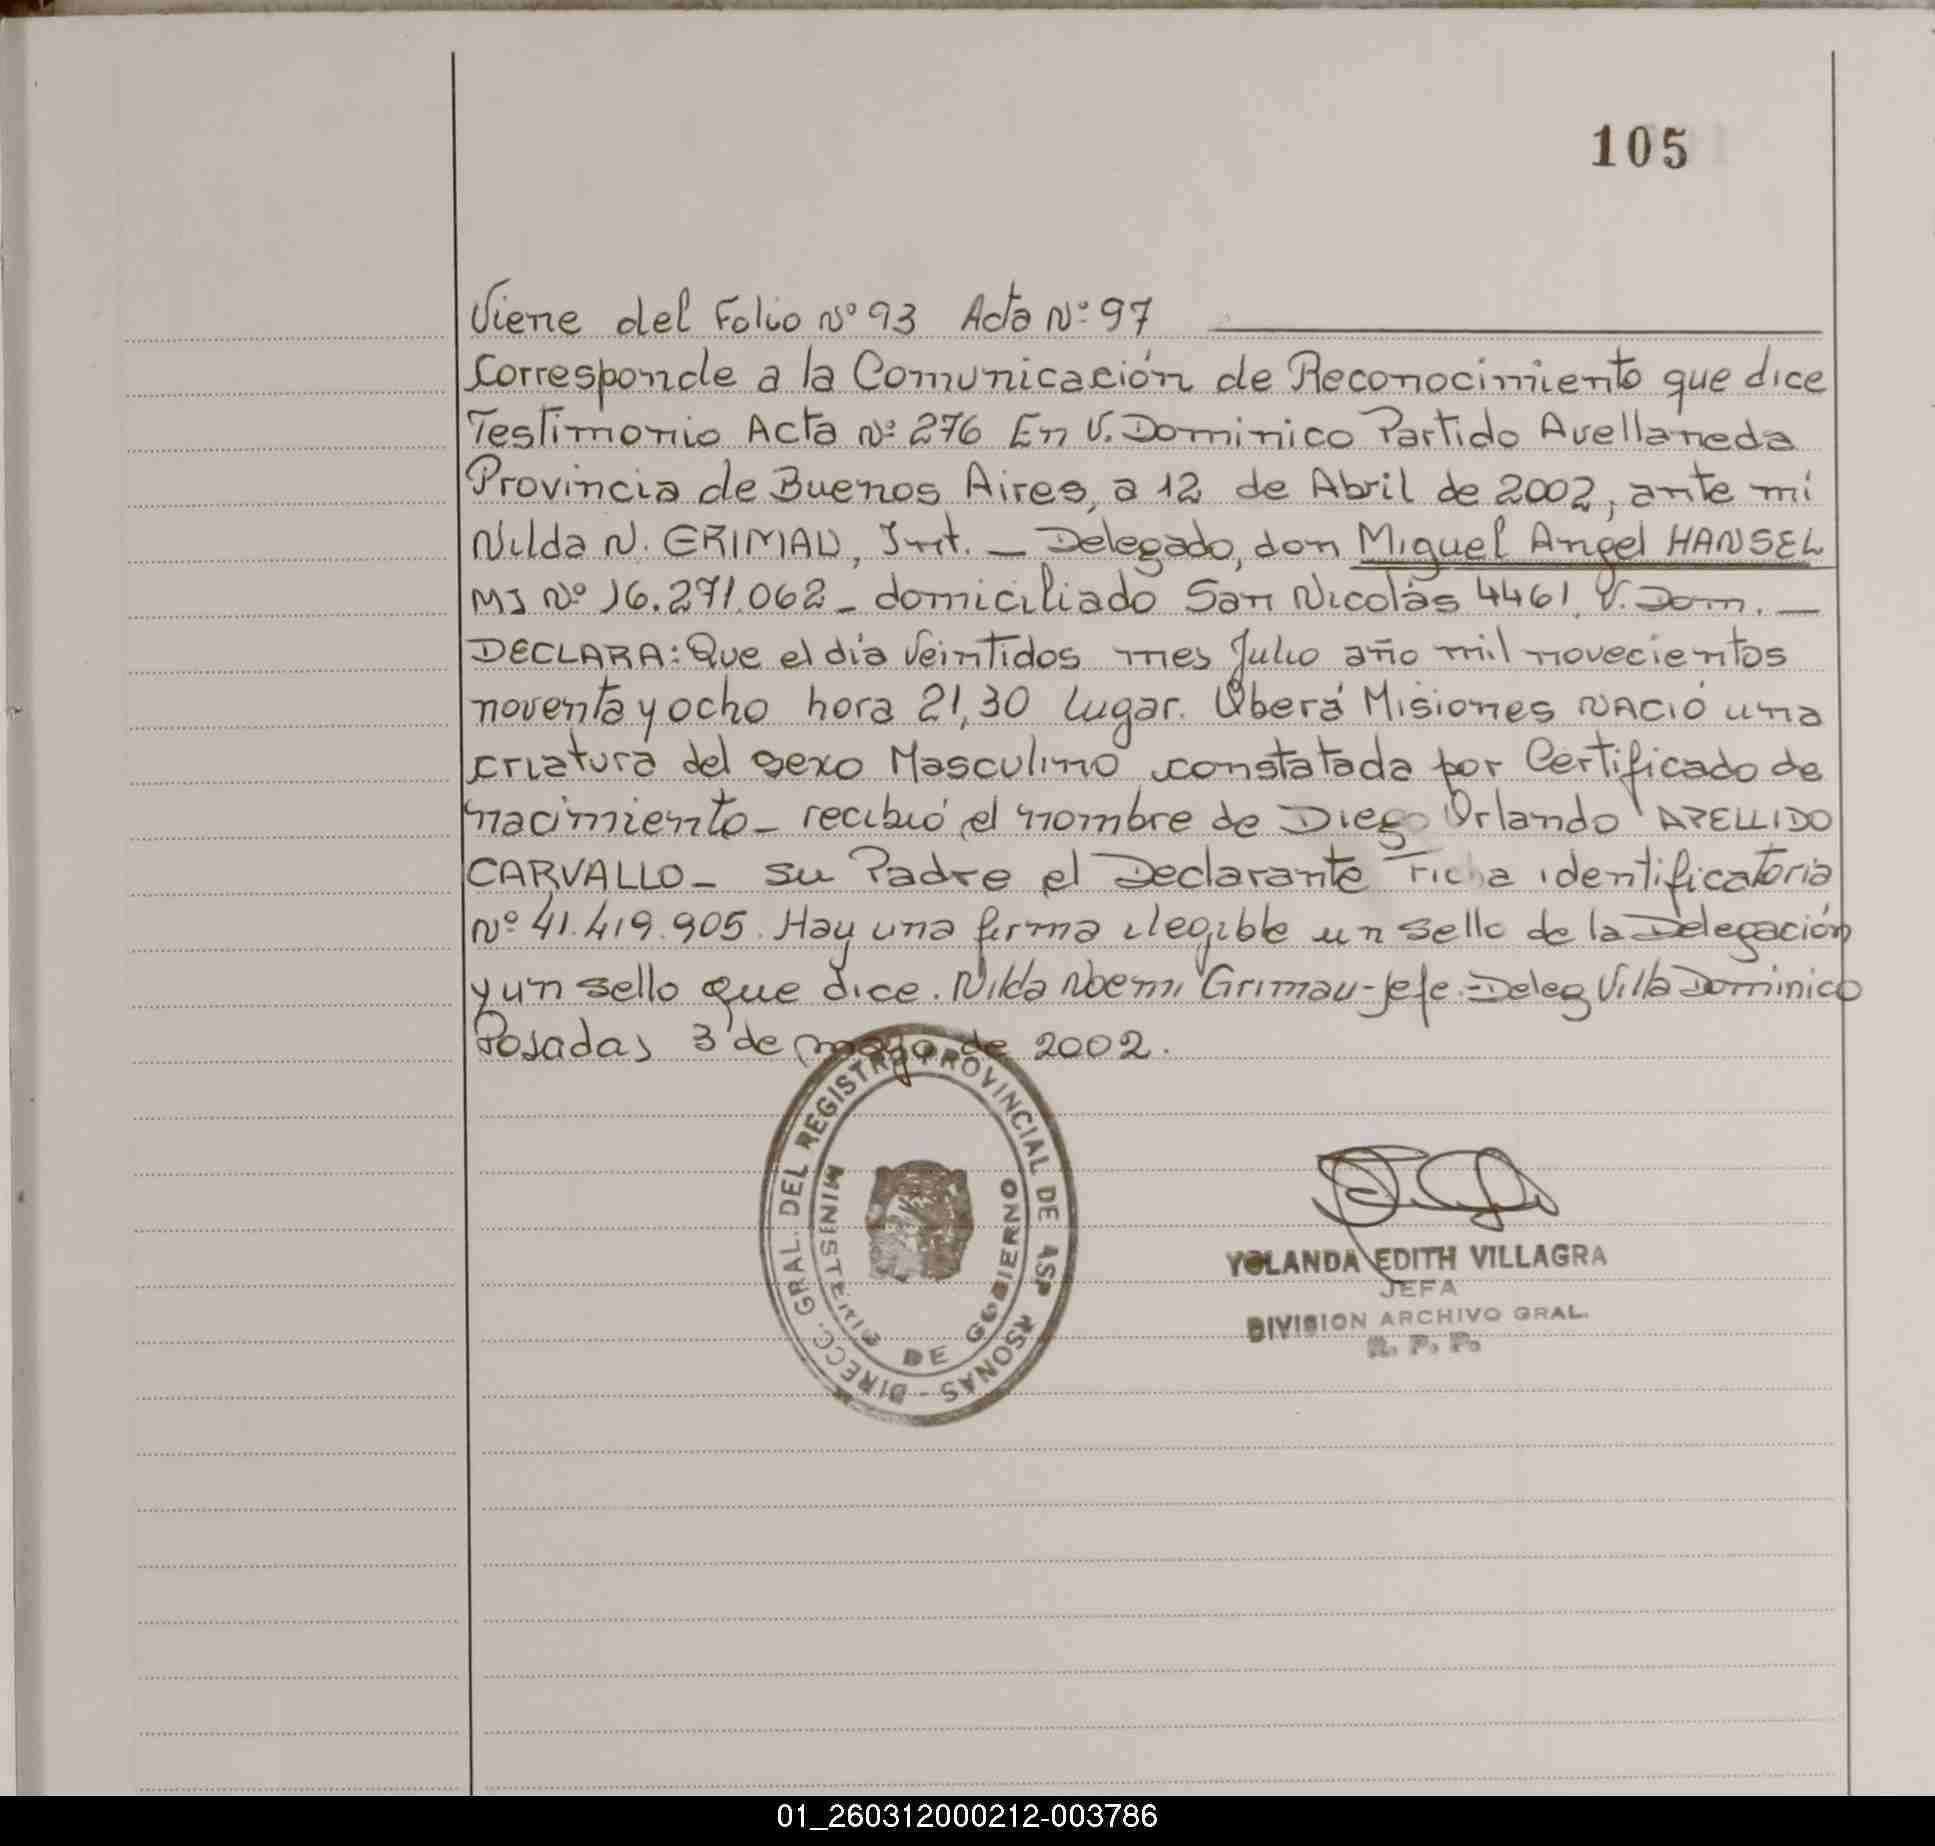 105
Viene del Folio Nº 93 Acta Nº 97
Corresponde a la Comunicación de Reconocimiento que dice
Testimonio Acta Nº 276 En V. Dominico Partido Avellaneda
Provincia de Buenos Aires, a 12 de Abril de 2002, ante mi
Nilda N. GRIMAU, Int. _ Delegado, don Miguel Angel HANSEL
MI Nº 16.271.062 _ domiciliado San Nicolás 4461 V. Dom. _
DECLARA: Que el día Veintidos mes Julio año mil novecientos
noventa y ocho hora 21,30 lugar. Oberá Misiones NACIÓ una
criatura del sexo Masculino constatada por Certificado de
nacimiento _ recibió el nombre de Diego Orlando APELLIDO
CARVALLO _ su Padre el Declarante Ficha identificatoria
Nº 41.419.905. Hay una firma ilegible un sello de la Delegación
y un sello que dice. Nilda Noemi Grimau - Jefe - Deleg Villa Dominico
Posadas 3 de mayo de 2002.
DIRECC. GRAL. DEL REGISTRO PROVINCIAL DE ASP RSONAS -
MINISTERIO DE GOBIERNO
YOLANDA EDITH VILLAGRA
JEFA
DIVISION ARCHIVO GRAL.
R. P. P.
01_260312000212-003786